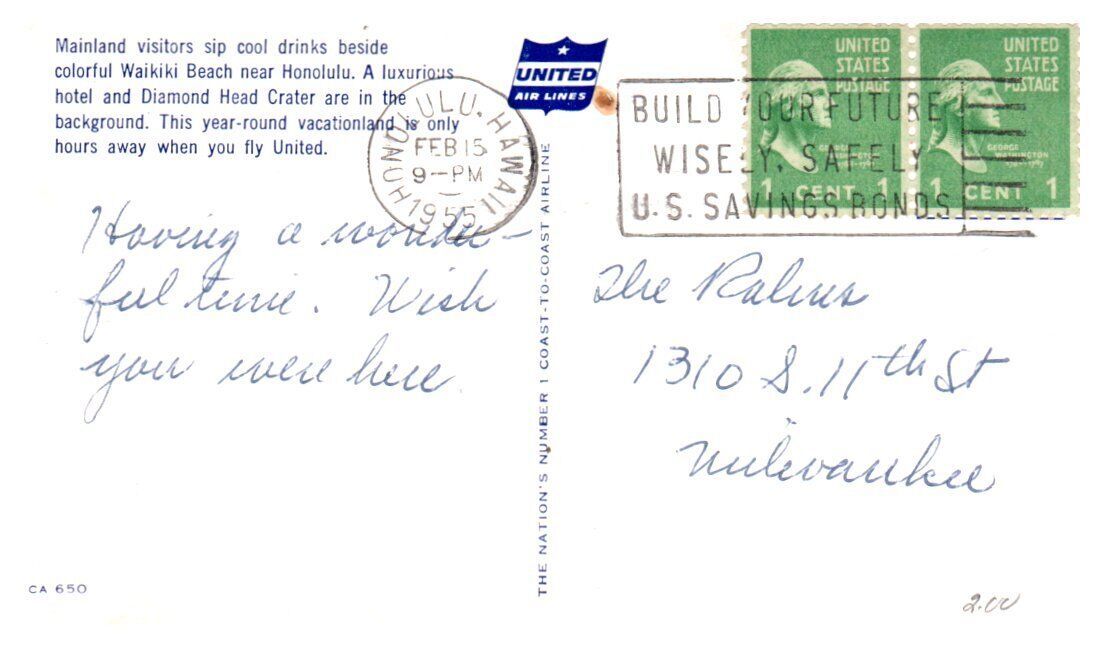 Mainland visitors sip cool drinks beside
colorful Waikiki Beach near Honolulu. A luxurious
hotel and Diamond Head Crater are in the
background. This year-round vacationland is only
hours away when you fly United.
UNITED
AIR LINES
HONOLULU. HAWAII
FEB 15
9-PM
1955
BUILD YOUR FUTURE
WISELY, SAFELY
U.S. SAVINGS BONDS
UNITED
STATES
POSTAGE
GEORGE
WASHINGTON
1789-1797
1 CENT 1
UNITED
STATES
POSTAGE
GEORGE
WASHINGTON
1789-1797
1 CENT 1
Having a wonder-
ful time. Wish
you were here.
THE NATION'S NUMBER 1 COAST-TO-COAST AIRLINE
The
1310 S. 11th St
Milwaukee
CA 650
2.00